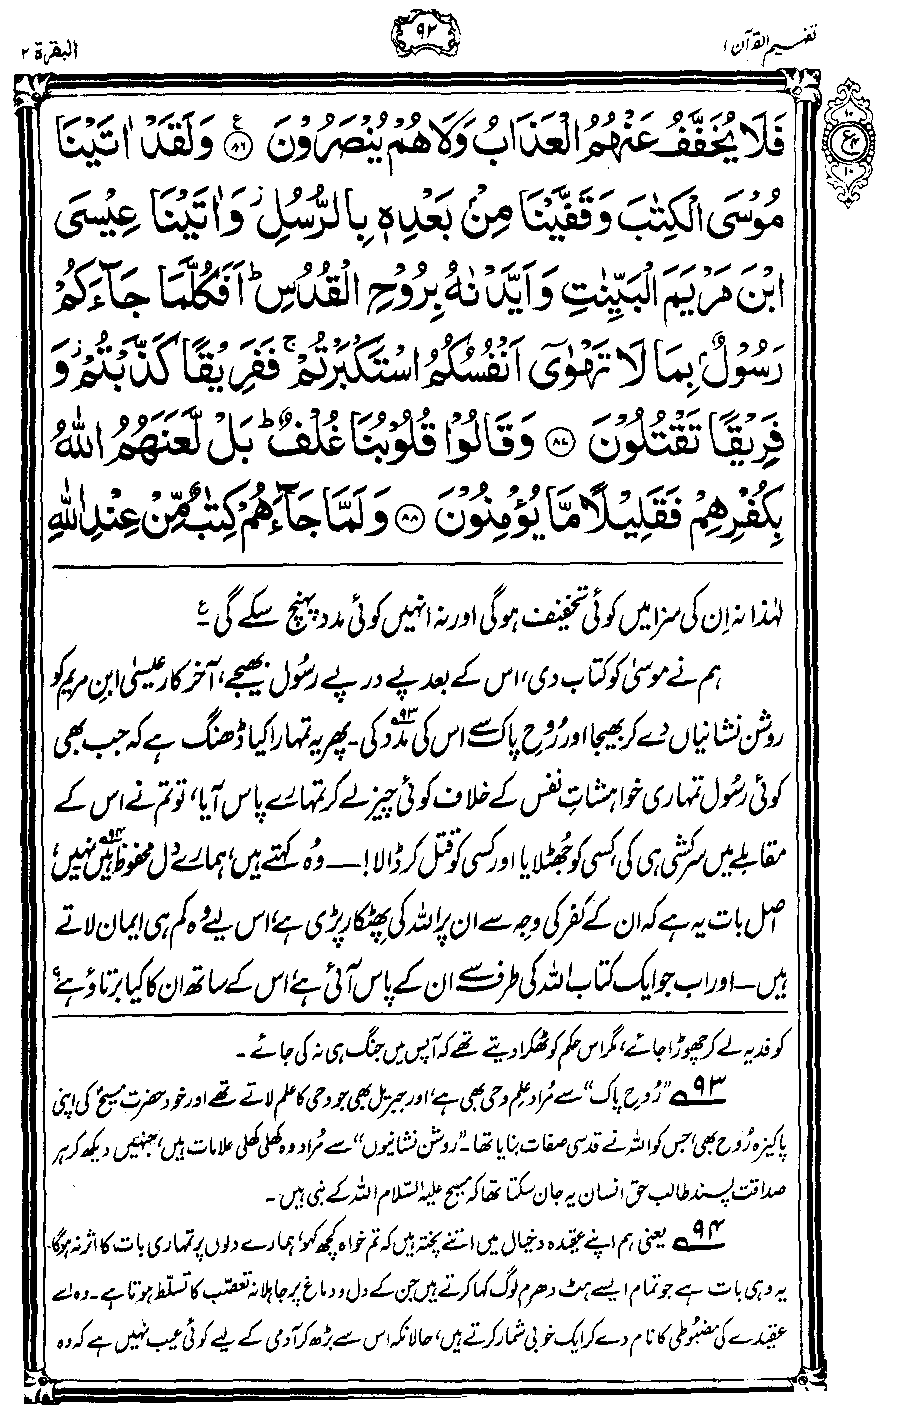 تفہیم القرآن ۱
۹۲
البقرۃ ۲
فَلَا يُخَفَّفُ عَنْهُمُ الْعَذَابُ وَلَا هُمْ يُنْصَرُوْنَ ﴿۸۶﴾ ع وَلَقَدْ اٰتَيْنَا
مُوْسَى الْكِتٰبَ وَقَفَّيْنَا مِنْۢ بَعْدِهٖ بِالرُّسُلِ ز وَاٰتَيْنَا عِيْسَى
ابْنَ مَرْيَمَ الْبَيِّنٰتِ وَاَيَّدْنٰهُ بِرُوْحِ الْقُدُسِ ط اَفَكُلَّمَا جَآءَكُمْ
رَسُوْلٌۢ بِمَا لَا تَهْوٰٓى اَنْفُسُكُمُ اسْتَكْبَرْتُمْ ج فَفَرِيْقًا كَذَّبْتُمْ ز وَ
فَرِيْقًا تَقْتُلُوْنَ ﴿۸۷﴾ وَقَالُوْا قُلُوْبُنَا غُلْفٌ ط بَلْ لَّعَنَهُمُ اللّٰهُ
بِكُفْرِهِمْ فَقَلِيْلًا مَّا يُؤْمِنُوْنَ ﴿۸۸﴾ وَلَمَّا جَآءَهُمْ كِتٰبٌ مِّنْ عِنْدِ اللّٰهِ
۱۰
ع
۴
۱۰
لہٰذا نہ اِن کی سزا میں کوئی تخفیف ہوگی اور نہ انہیں کوئی مدد پہنچ سکے گی ع
ہم نے موسیٰ کو کتاب دی، اس کے بعد پے در پے رسُول بھیجے، آخر کار عیسیٰ ابنِ مریم کو
روشن نشانیاں دے کر بھیجا اور رُوحِ پاک سے اس کی مدد کی۹۳۔ پھر یہ تمہارا کیا ڈھنگ ہے کہ جب بھی
کوئی رسُول تمہاری خواہشاتِ نفس کے خلاف کوئی چیز لے کر تمہارے پاس آیا، تو تم نے اس کے
مقابلے میں سرکشی ہی کی، کسی کو جُھٹلایا اور کسی کو قتل کر ڈالا! — وُہ کہتے ہیں، ہمارے دل محفوظ ہیں۹۴ نہیں،
اصل بات یہ ہے کہ ان کے کفر کی وجہ سے ان پر اللہ کی پھٹکار پڑی ہے، اس لیے وُہ کم ہی ایمان لاتے
ہیں — اور اب جو ایک کتاب اللہ کی طرف سے ان کے پاس آئی ہے، اس کے ساتھ ان کا کیا برتاؤ ہے؟
کو فدیہ لے کر چھوڑا جائے، مگر اس حکم کو ٹھکرا دیتے تھے کہ آپس میں جنگ ہی نہ کی جائے۔
۹۳ ”رُوحِ پاک“ سے مُراد علمِ وحی بھی ہے، اور جبریل بھی جو وحی کا علم لاتے تھے اور خود حضرت مسیح کی اپنی
پاکیزہ رُوح بھی، جس کو اللہ نے قدسی صفات بنایا تھا۔ ”روشن نشانیوں“ سے مُراد وہ کھلی کھلی علامات ہیں، جنہیں دیکھ کر ہر
صداقت پسند طالبِ حق انسان یہ جان سکتا تھا کہ مسیح علیہ السّلام اللہ کے نبی ہیں۔
۹۴ یعنی ہم اپنے عقیدہ و خیال میں اتنے پختہ ہیں کہ تم خواہ کچھ کہو، ہمارے دلوں پر تمہاری بات کا اثر نہ ہوگا۔
یہ وہی بات ہے جو تمام ایسے ہٹ دھرم لوگ کہا کرتے ہیں جن کے دل و دماغ پر جاہلانہ تعصّب کا تسلّط ہوتا ہے۔ وہ اسے
عقیدے کی مضبُوطی کا نام دے کر ایک خوبی شمار کرتے ہیں، حالانکہ اس سے بڑھ کر آدمی کے لیے کوئی عیب نہیں ہے کہ وہ